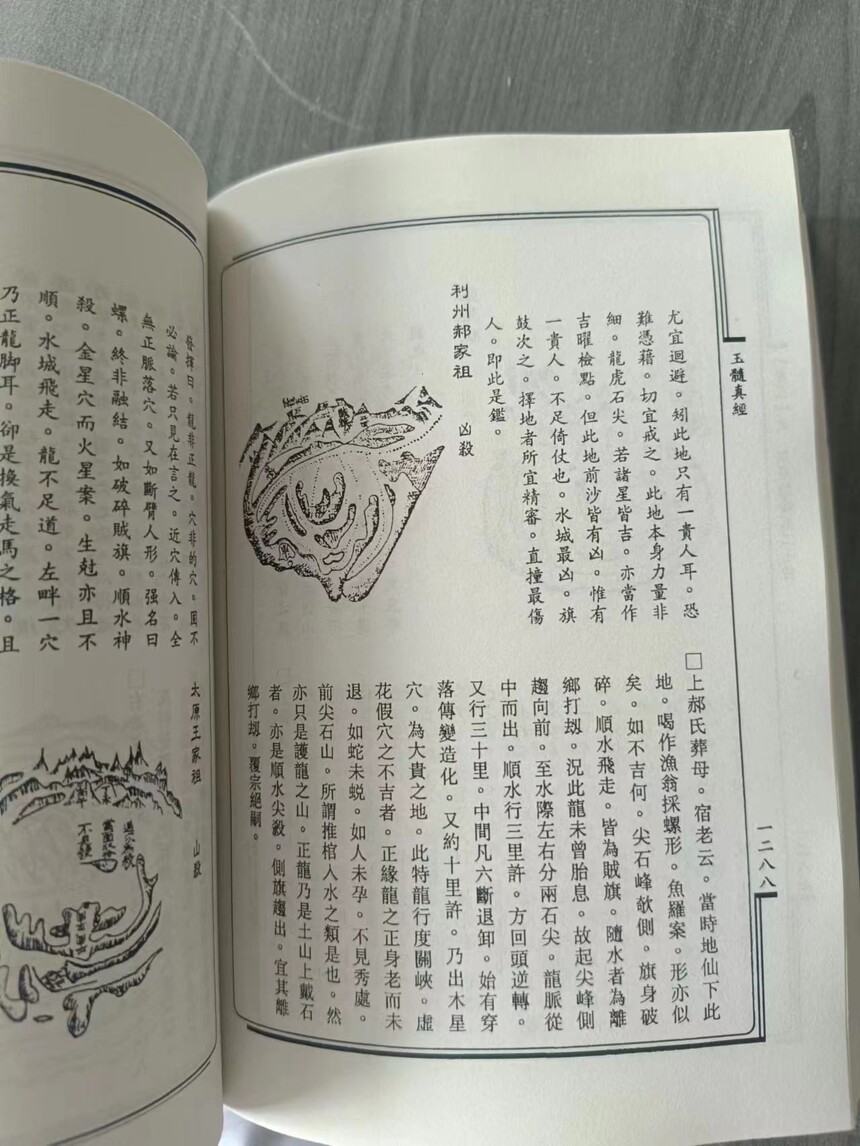 玉髓真經
一二八八
尤宜迴避。矧此地只有一貴人耳。恐
難憑藉。切宜戒之。此地本身力量非
細。龍虎石尖。若諸星皆吉。亦當作
吉曜檢點。但此地前沙皆有凶。惟有
一貴人。不足倚仗也。水城最凶。旗
鼓次之。擇地者所宜精審。直撞最傷
人。即此是鑑。
利州郝家祖 凶殺
□上郝氏葬母。宿老云。當時地仙下此
地。喝作漁翁採螺形。魚羅案。形亦似
矣。如不吉何。尖石峰欹側。旗身破
碎。順水飛走。皆為賊旗。隨水者為離
鄉打刼。況此龍未曾胎息。故起尖峰側
趨向前。至水際左右分兩石尖。龍脈從
中而出。順水行三里許。方回頭逆轉。
又行三十里。中間凡六斷退卸。始有穿
落傳變造化。又約十里許。乃出木星
穴。為大貴之地。此特龍行度關峽。虛
花假穴之不吉者。正緣龍之正身老而未
退。如蛇未蛻。如人未孕。不見秀處。
前尖石山。所謂推棺入水之類是也。然
亦只是護龍之山。正龍乃是土山上戴石
者。亦是順水尖殺。側旗趨出。宜其離
鄉打刼。覆宗絕嗣。
發揮曰。龍非正龍。穴非的穴。固不
必論。若只見在言之。近穴傳入。全
無正脈落穴。又如斷臂人形。强名曰
螺。終非融結。如破碎賊旗。順水神
殺。金星穴而火星案。生尅亦且不
順。水城飛走。龍不足道。左畔一穴
乃正龍脚耳。卻是換氣走馬之格。且
太原王家祖 山殺